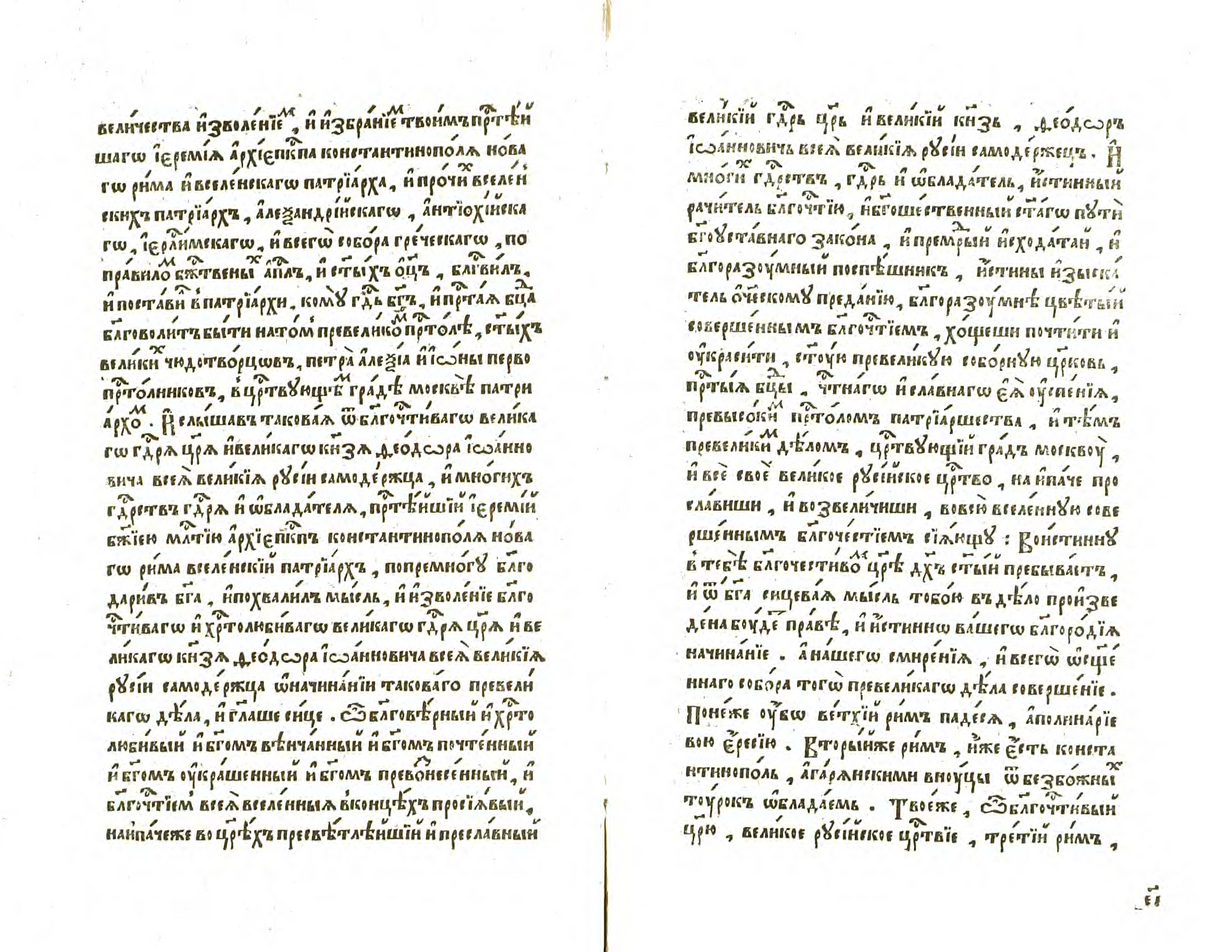 величества и҆зволе́нїеⷨ, и҆ и҆збра́нїеⷨ твои́мъ прⷭ҇тѣ́й
шагѡ і҆єремі́ѧ а҆рхїєпⷭ҇кпа константинопо́лѧ но́ва
гѡ ри́ма и҆ вселе́нскагѡ патрїа́рха, и҆ про́чиⷯ вселе́н
скихъ патрїа́рхъ, а҆леѯандрі́йскагѡ, а҆нтїохі́йска
гѡ, і҆єрⷭ҇ли́мскагѡ, и҆ всегѡ̀ собо́ра гре́ческагѡ, по
пра́вилоⷨ бж҃твеныⷯ а҆пⷭ҇лъ, и҆ ст҃ы́хъ ѻ҆ц҃ъ, блⷭ҇ви́лъ,
и҆ поста́ви в патрїа́рхи, комꙋ̀ гдⷭ҇ь бг҃ъ, и҆ прⷭ҇таѧ бцⷣа
благоволи́тъ бы́ти на то́м превели́коⷨ прⷭ҇то́лѣ, ст҃ы́хъ
вели́киⷯ чюдотво́рцовъ, петра̀ а҆леѯі́а и҆ і҆ѡ́ны перво
прⷭ҇то́лниковъ, в црⷭ҇твꙋющеⷨ гра́дѣ москвѣ̀ патри
а́рхоⷨ. И҆ слы́шавъ такова́ѧ ѿ бл҃гочⷭ҇ти́вагѡ вели́ка
гѡ гдⷭ҇рѧ црѧ̀ и҆ вели́кагѡ кн҃зѧ ѳео́дѡра і҆ѡа́нно
вича всеѧ̀ вели́кїѧ рꙋсі́и самоде́ржца, и҆ мно́гихъ
гдⷭ҇рствъ гдⷭ҇рѧ и҆ ѡ҆блада́телѧ, прⷭ҇тѣ́йшїй і҆єремі́й
бж҃їею млⷭ҇тїю а҆рхїєпⷭ҇кпъ константинопо́лѧ но́ва
гѡ ри́ма вселе́нскїй патрїа́рхъ, попремно́гꙋ бл҃го
дари́въ бг҃а, и҆ похвали́лъ мы́сль, и҆ и҆зволе́нїе бл҃го
чⷭ҇ти́вагѡ и҆ хрⷭ҇толюби́вагѡ вели́кагѡ гдⷭ҇рѧ црѧ̀ и҆ ве
ли́кагѡ кн҃зѧ ѳео́дѡра і҆ѡа́нновича всеѧ̀ вели́кїѧ
рꙋсі́и самоде́ржца ѡ҆ начина́нїи такова́го превели
кагѡ дѣ́ла, и҆ гл҃аше си́це. Ѽ бл҃говѣ́рный и҆ хрⷭ҇то
люби́вый и҆ бг҃омъ вѣнча́нный и҆ бг҃омъ почте́нный
и҆ бг҃омъ ᲂу҆кра́шенный и҆ бг҃омъ превоⷥнесе́нный, и҆
бл҃гочⷭ҇тїем всеѧ̀ вселе́нныѧ в конце́хъ просїѧ́вый,
наипа́чеже во цр҃ѣ́хъ пресвѣтлѣ́йшїй и҆ пресла́вный
вели́кїй гдⷭ҇рь цр҃ь и҆ вели́кїй кн҃зь, ѳео́дѡръ
і҆ѡа́нновичь всеѧ̀ вели́кїѧ рꙋсі́и самоде́ржецъ. И҆
мно́гиⷯ гдⷭ҇рствъ, гдⷭ҇рь и҆ ѡ҆блада́тель, и҆́стинный
рачи́тель бл҃гочⷭ҇тїю, и҆ бг҃ошественный ст҃а́гѡ пꙋтѝ
бг҃оꙋста́внаго зако́на, и҆ премⷣрый и҆схода́таи, и҆
бл҃горазꙋ́мный поспѣ́шникъ, и҆́стины и҆зыска́
тель ѻ҆́ч҃ескомꙋ преда́нїю, бл҃горазꙋ́мнѣ цвѣты́й
соверше́ннымъ бл҃гочⷭ҇тїемъ, хо́щеши почти́ти и҆
ᲂу҆краси́ти, ст҃ꙋ́ю превели́кꙋю собо́рнꙋю цр҃ковь,
прⷭ҇тыѧ бцⷣы, чⷭ҇тна́гѡ и҆ сла́внагѡ є҆ѧ̀ ᲂу҆спе́нїѧ,
превысо́киⷨ прⷭ҇то́ломъ патрїа́ршества, и҆ тѣ́мъ
превели́киⷨ дѣ́ломъ, црⷭ҇твꙋющїй гра́дъ москвоу̀,
и҆ всѐ своѐ вели́кое рꙋсі́йское црⷭ҇тво, наи́паче про
сла́виши, и҆ возвели́чиши, во всю̀ вселе́ннꙋю сове
рше́ннымъ благоче́стїемъ сїѧ́ющꙋ: Вои́стиннꙋ
в тебѣ̀ бл҃гочести́воⷨ цр҃ѣ̀ дх҃ъ ст҃ы́й пребыва́етъ,
и҆ ѿ бг҃а сицева́ѧ мы́сль тобо́ю въ дѣ́ло произве
дена̀ бꙋ́деⷮ пра́вѣ, и҆ и҆́стиннѡ ва́шегѡ бл҃горо́дїѧ
начина́нїе. а҆ на́шегѡ смире́нїѧ, и҆ всегѡ̀ ѡ҆сщ҃е́
ннаго собо́ра тогѡ̀ превели́кагѡ дѣ́ла соверше́нїе.
Поне́же ᲂу҆́бѡ ве́тхїй ри́мъ паде́сѧ, а҆полина́рїе
вою є҆́ресїю. Вторы́йже ри́мъ, и҆́же є҆́сть конста
нтинопо́ль, а҆гарѧ́нскими внꙋ́цы ѿ безбо́жныⷯ
тоу́рокъ ѡ҆блада́емь. Твое́же, ѽ бл҃гочⷭ҇ти́вый
цр҃ю, вели́кое рꙋсі́йское црⷭ҇твїе, тре́тїй ри́мъ,
є҃і